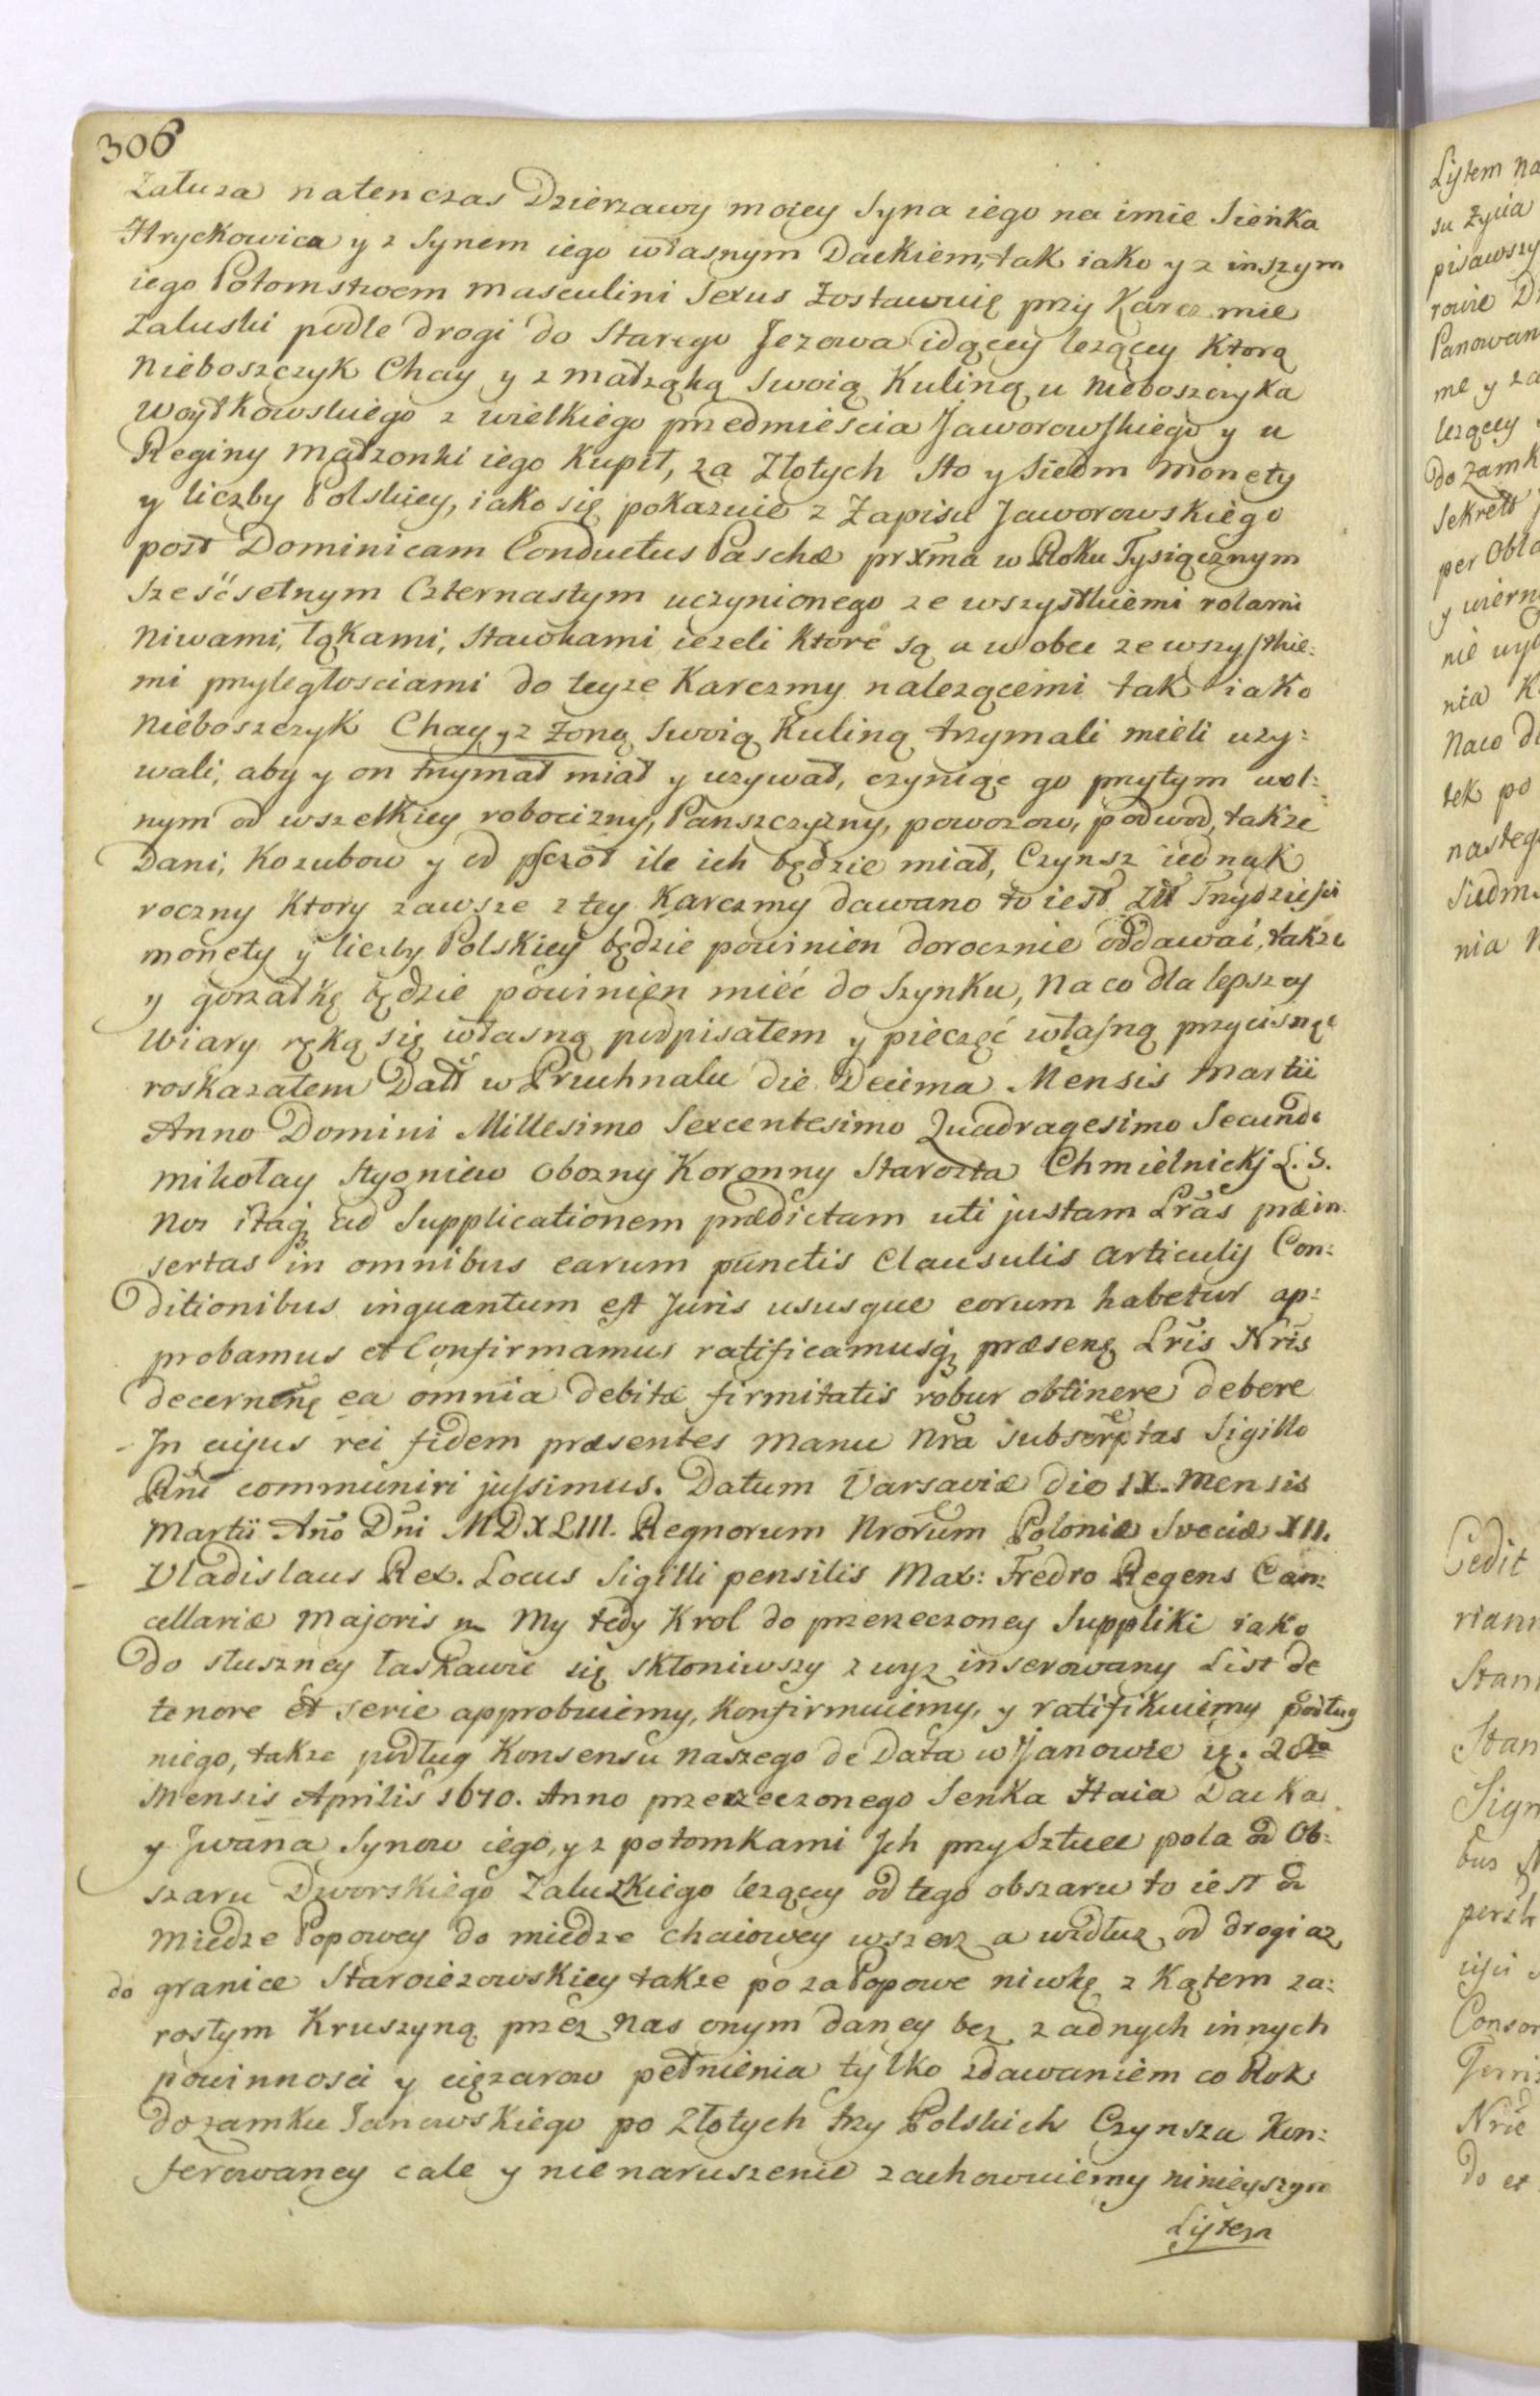 306
Załuza natenczas Dzierzawy moiey Syna iego na imie Sieńka
Hryckowica y z Synem iego własnym Dackiem, tak iako y z inszym
iego Potomstwem masculini Sexus Zostawuię przy Karczmie
Zaluski podle drogi do Starego Jezowa idącey lezącey Ktorą
Nieboszczyk Chay y z małząką Swoią Kuliną u Nieboszczyka
Woytkowskiego z wielkiego przedmieścia Jaworowskiego y u
Reginy małzonki iego Kupił, za Złotych Sto y Siedm monety
y liczby Polskiey, iako się pokazuie z Zapisu Jaworowskiego
post Dominicam Conductus Paschæ prxma w Roku Tysiącznym
Sześćsetnym Czternastym uczynionego ze wszystkiemi rolami
Niwami, łąkami, Stawkami iezeli Ktore są a w obec ze wszystkie:
mi przyległosciami do teyze Karczmy nalezącemi tak iako
Nieboszczyk Chay y z Zoną Swoią Kuliną trzymali mieli uzy:
wali, aby y on trzymał miał y uzywał, czyniąc go przytym wol:
nym od wszelkiey robocizny, Panszczyzny, powozow, podwod, takze
Dani, Kozubow y od pszczoł ile ich będzie miał, Czynsz iednak
roczny Ktory zawsze z tey Karczmy dawano to iest Złł Trzydziesci
monety y liczby Polskiey będzie powinien dorocznie oddawać, takze
y gorzałkę będzie powinien mieć do Szynku, Na co dla lepszey
Wiary ręką się własną podpisałem y pieczęć własną przycisnąc
roskazałem Datt w Pruchnalu die Decima Mensis Martii
Anno Domini Millesimo Sexcentesimo Quadragesimo Secundo
mikołay Stygniew Obozny Koronny Starosta Chmielnickj L.S.
Nos itaq ad Supplicationem prædictam uti justam Lras præin:
sertas in omnibus earum punctis Clausulis articulis Con:
Ditionibus inquantum est Juris ususque eorum habetur ap:
probamus et Confirmamus ratificamusq præsenę Lris Nris
decernenę ea omnia debitæ firmitatis robur obtinere debere
- In cujus rei fidem præsentes manu Nra Subscriptas Sigillo
Rni communiri jussimus. Datum Varsaviæ die IX. Mensis
Martii Ano Dni MDXLIII. Regnorum Nrorum Poloniæ Sveciæ XII.
- Vladislaus Rex. Locus Sigilli pensilis Max: Fredro Regens Can:
cellariæ Majoris m My tedy Krol do przerzeczoney Suppliki iako
Do słuszney łaskawie się skłoniwszy zwyz inserowany List de
tenore et serie approbuiemy, Konfirmuiemy, y ratifikuiemy podług
niego, takze podług Konsensu Naszego de Data w Janowie 20
Mensis Aprilis 1640. Anno przerzeczonego Senka Haia Dacka
y Jwana Synow iego, y z potomkami Jch przy Sztuce pola od Ob:
szaru Dworskiego Zaluzkiego lezącey od tego obszaru to iest od
Miedze Popowey do miedze chaiowey wszerz a wzdłuz od drogi az
do granice Staroiezowskiey takze po za Popowe niwkę z Kątem za:
rosłym Kruszyną przez Nas onym daney bez zadnych innych
powinnosci y cięzarow pełnienia tylko zdawaniem co Rok
do zamku Janowskiego po Złotych trzy Polskich Czynszu Kon:
ferowaney cale y nienaruszenie zachowuiemy ninieyszym
Lystem